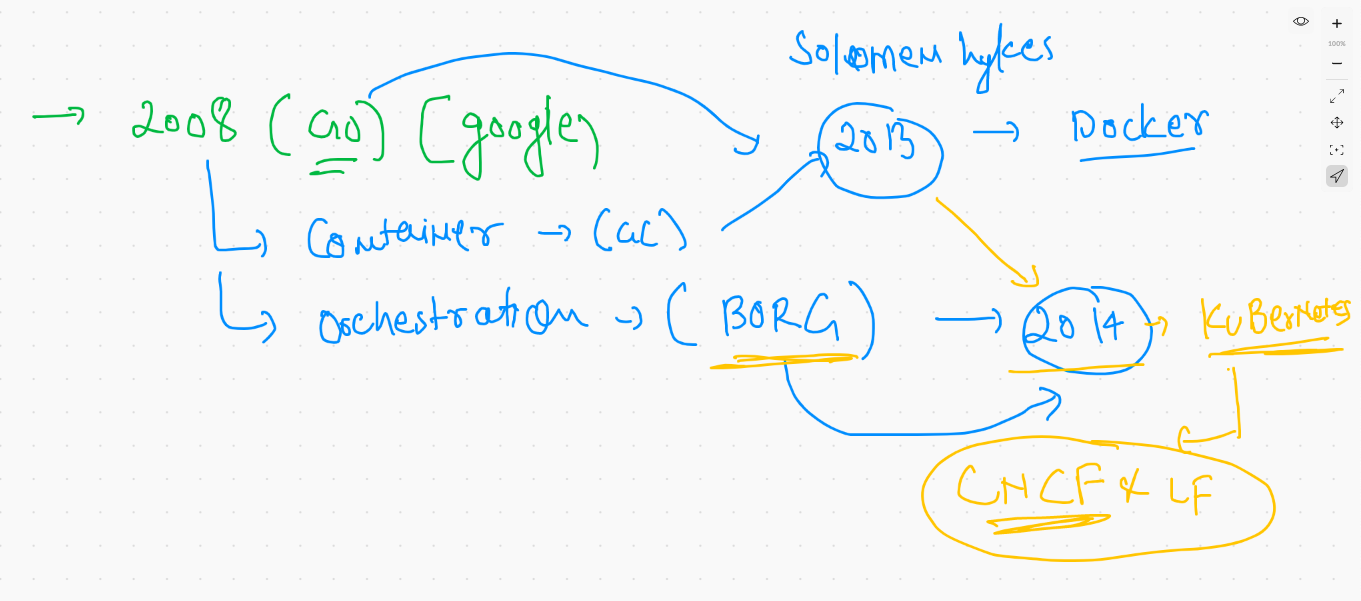 Solomen hykes
→ 2008 (GO) [google)
2013 → Docker
Container → (GC)
Orchestration → (BORG) → 2014 → KuBerNetes
CNCF & LF
100%